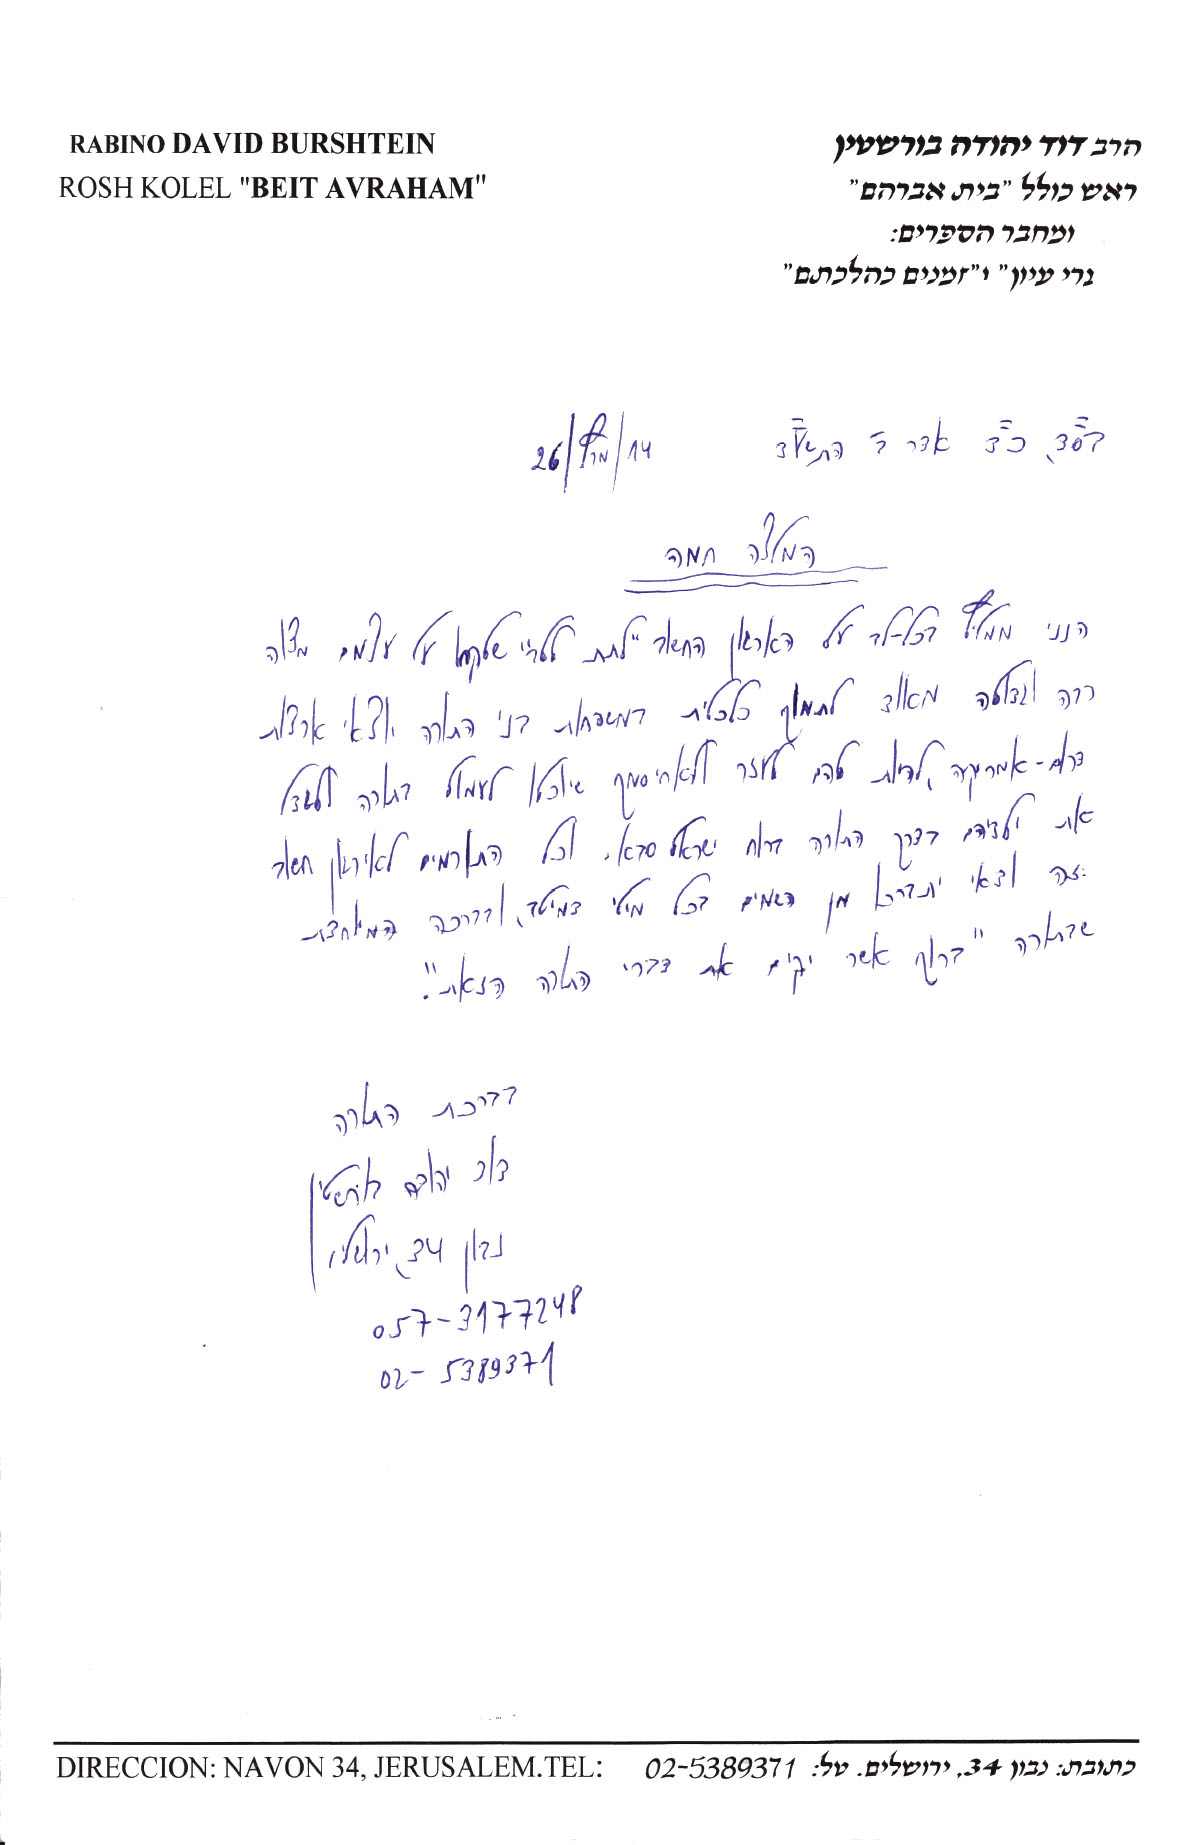 RABINO DAVID BURSHTEIN
ROSH KOLEL "BEIT AVRAHAM"
הרב דוד יהודה בורשטין
ראש כולל "בית אברהם"
ומחבר הספרים:
נרי עיון" ו"זמנים כהלכתם"
בס"ד, כ"ד אדר ב' התשע"ד
26/מרץ/14
המלצה חמה
הנני ממליץ בכל-לב על הארגון החשוב "לתת לחיי" שלקחו על עצמם מצוה
רבה וגדולה מאוד לתמוך כלכלית במשפחות בני התורה יוצאי ארצות
דרום-אמריקה, להיות להם לעזר ולאחיסמך שיוכלו לעמול בתורה ולגדל
את ילדיהם בדרך התורה ברוח ישראל סבא. וכל התורמים לאירגון חשוב
זה ודאי יתברכו מן השמים בכל מילי דמיטב, ובברכה המיוחדת
שבתורה "ברוך אשר יקים את דברי התורה הזאת".
בברכת התורה
דוד יהודה בורשטין
נבון 34, ירושלים
057-3177248
02-5389371
DIRECCION: NAVON 34, JERUSALEM.TEL: 02-5389371 כתובת: נבון 34, ירושלים. טל: